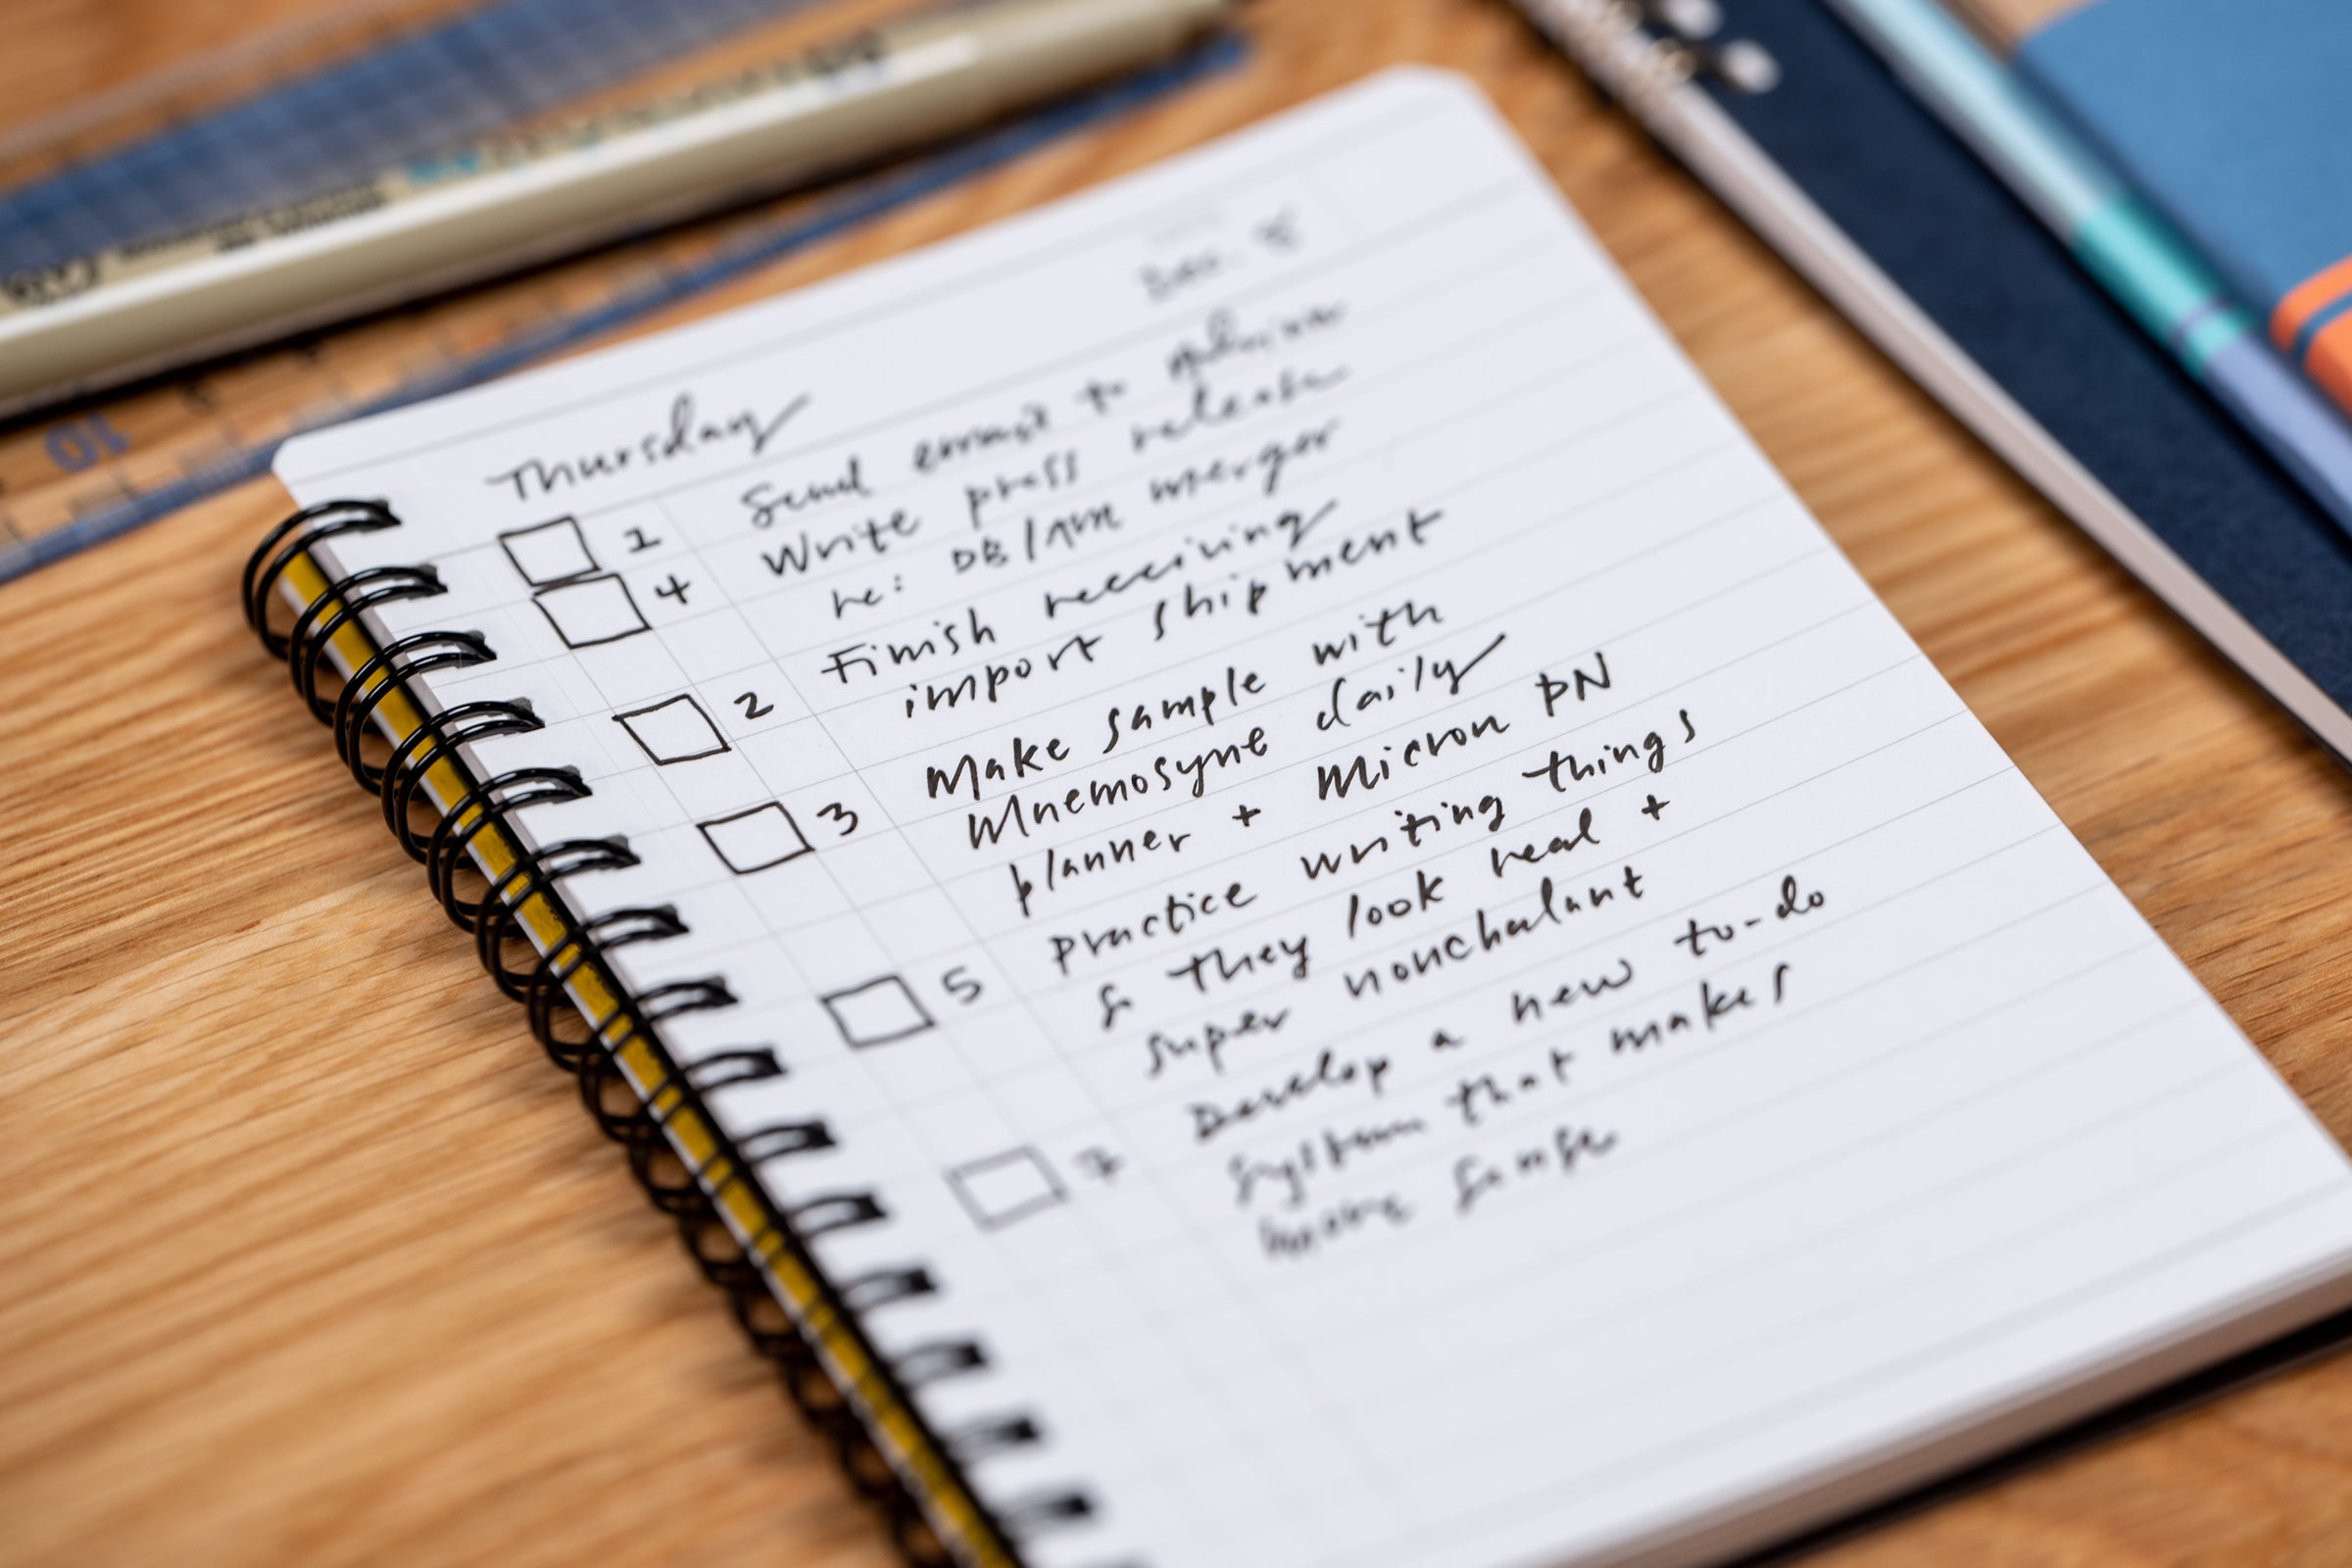 Dec. 8
Thursday
1 Send email to
4 Write press release
re: DB/ merger
2 Finish receiving
import shipment
3 Make sample with
Mnemosyne daily
planner + Micron PN
5 practice writing things
so they look real +
super nonchalant
7 Develop a new to-do
system that makes
more sense
10